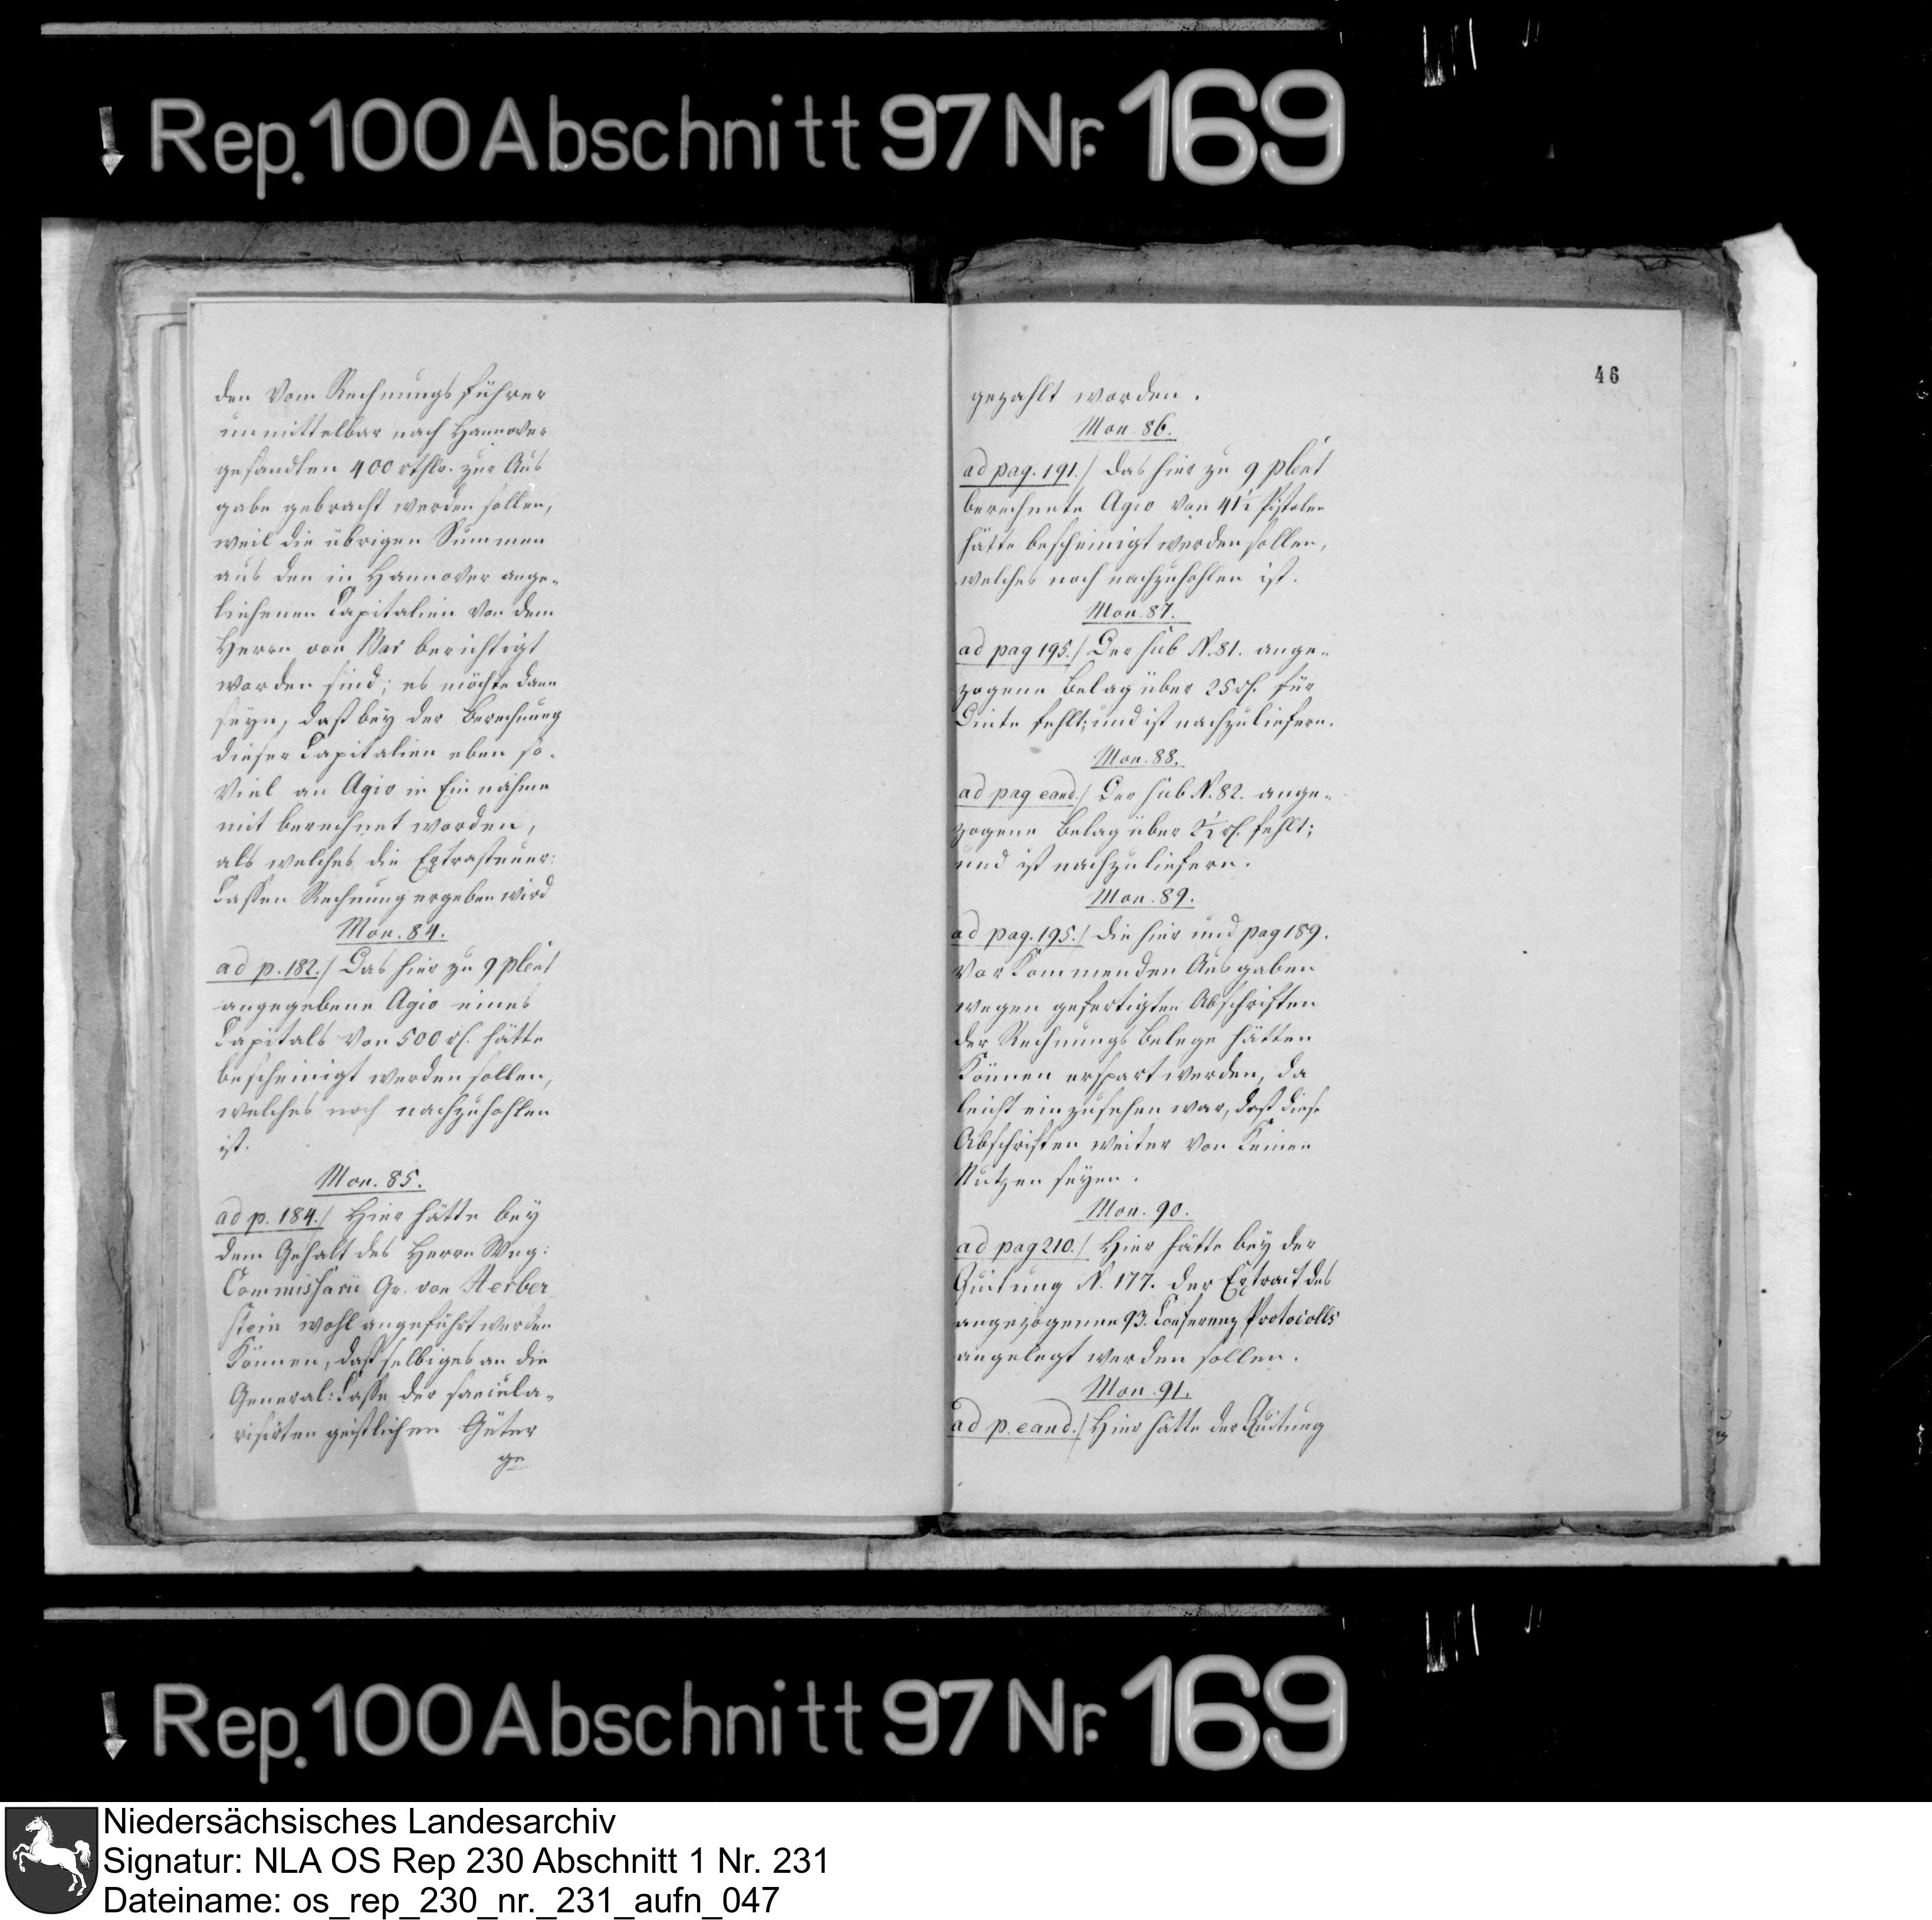 Rep. 100 Abschnitt 97 Nr. 169
den vom Rechnungsführer
unmittelbar nach Hannover
gesandten 400 rthlr. zur Aus
gabe gebracht werden sollen,
weil die übrigen Summen
aus den in Hannover ange-
liehenen Capitalien von dem
Herrn von Bar berichtigt
worden sind; es möchte dann
seyn, daß bey der Berechnung
dieser Capitalien eben so-
viel an Agio in Einnahme
mit berechnet worden,
als welches die Extrasteuer:
Cassen Rechnung ergeben wird
Mon. 84.
ad p. 182./ Das hier zu 9 pCent
angegebene Agio eines
Capitals von 500 rl. hätte
bescheinigt werden sollen,
welches noch nachzuhohlen
ist.
Mon. 85.
ad p. 184./ Hier hätte bey
dem Gehalt des Herrn Weg:
Commissarii Gr. von Herber
stein wohl angeführt werden
können, daß selbiges an die
General: Casse der saecula-
risirten geistlichen Güter
ge
46
gezahlt worden.
Mon. 86.
ad pag. 191./ das hier zu 9 pCent
berechnete Agio von 41½ Pistolen
hätte bescheinigt werden sollen,
welches noch nachzuhohlen ist.
Mon. 87.
ad pag 195./ Der sub N. 81. ange-
zogene Belag über 25 rl. für
Dinte fehlt; und ist nachzuliefern.
Mon. 88.
ad pag eand./ Der sub N. 82. ange-
zogene Belag über 2½ rl. fehlt;
und ist nachzuliefern.
Mon. 89.
ad pag. 195./ die hier und pag 189.
vorkommenden Ausgaben
wegen gefertigten Abschriften
der Rechnungs Belege hätten
können erspart werden, da
leicht einzusehen war, daß diese
Abschriften weiter von keinen
Nutzen seyen.
Mon. 90.
ad pag 210./ Hier hätte bey der
Quitung N. 177. der Extract des
angezogenen 93. Conferenz Protocolls
angelegt werden sollen.
Mon. 91.
ad p. eand./ Hier hätte der Quitung
Rep. 100 Abschnitt 97 Nr. 169
Niedersächsisches Landesarchiv
Signatur: NLA OS Rep 230 Abschnitt 1 Nr. 231
Dateiname: os_rep_230_nr._231_aufn_047